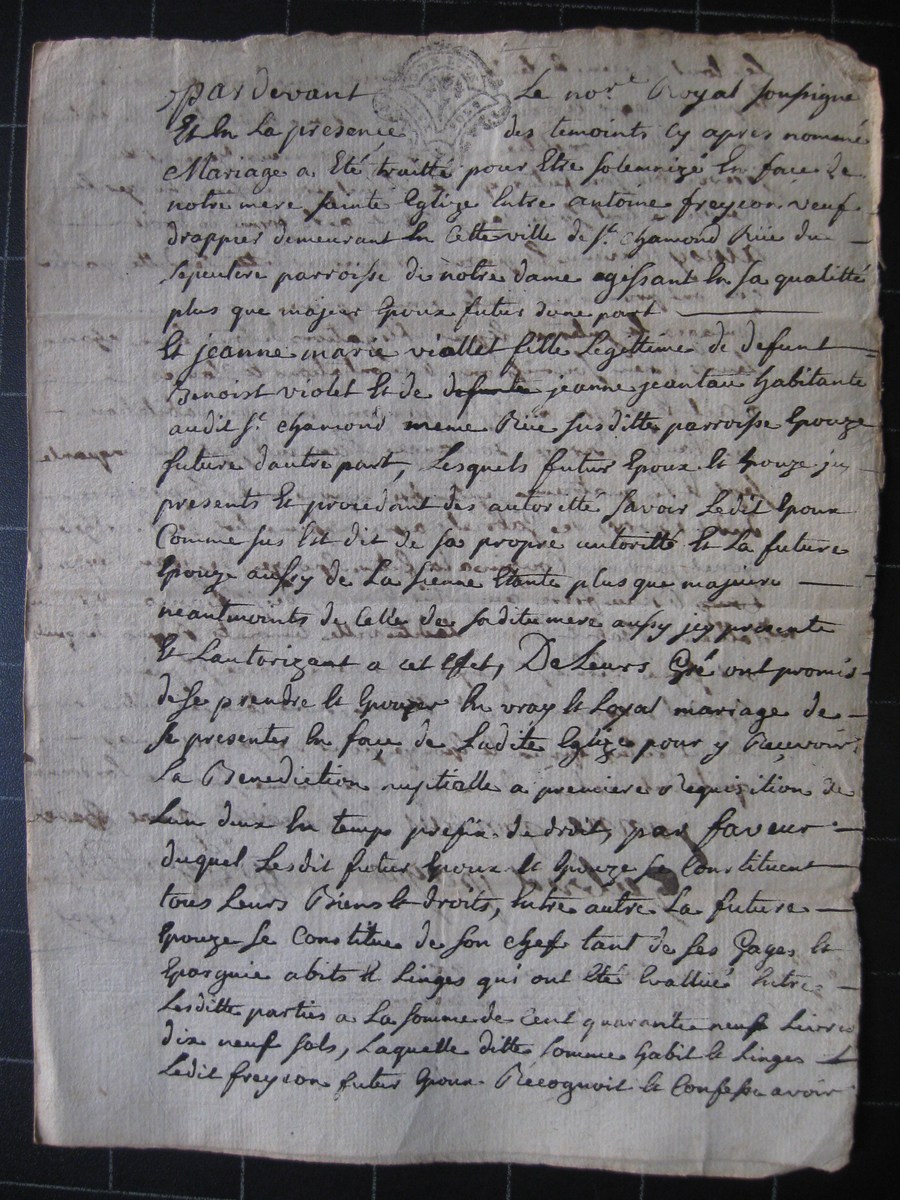 pardevant Le no.re Royal soussigne
Et En La presence des temoints Cy apres nommé
Mariage a Eté traitté pour Etre solemnizé En face de
notre mere sainte Eglize Entre antoine freyçon veuf
drappier demeurant En Cette ville de St. chamond Rüe du
sepulcre parroisse de notre dame agissant En sa qualitté
plus que majeur Epoux futur dune part
Et jeanne marie viallet fille Legettime de defunt
Benoist violet Et de defunte jeanne jeantau habitante
audit St. chamond meme Rüe susditte parroisse Epouze
future dautre part, Lesquels futur Epoux Et Epouze jcy
presents Et procedant des autoritté savoir Ledit Epoux
Comme sus Est dit de sa propre autoritté Et La future
Epouze aussy de La sienne Etante plus que majeure
neantmoints de Celle de saditte mere aussy jcy presente
Et Lautorizant a cet Efet, De Leurs Gré ont promis
de se prendre Et Epouzer En vray Et Loyal mariage de
se presenter En face de Ladite Eglize pour y Recevoir
La Benediction nuptialle a premiere Requisition de
Lun deux En temps prefix de droit, par faveur
duquel Lesdit futur Epoux Et Epouze se Constituent
tous Leurs Biens Et droits, Entre autre La future
Epouze se Constitue de son chef tant de ses Gages Et
Epargnie abits Et Linges qui ont Eté Evallué Entre
Lesditte parties a La somme de Cent quarante neuf Livres
dix neuf sols, Laquelle ditte somme habit Et Linges
Ledit freyçon futur Epoux Recognoit Et Confesse avoir